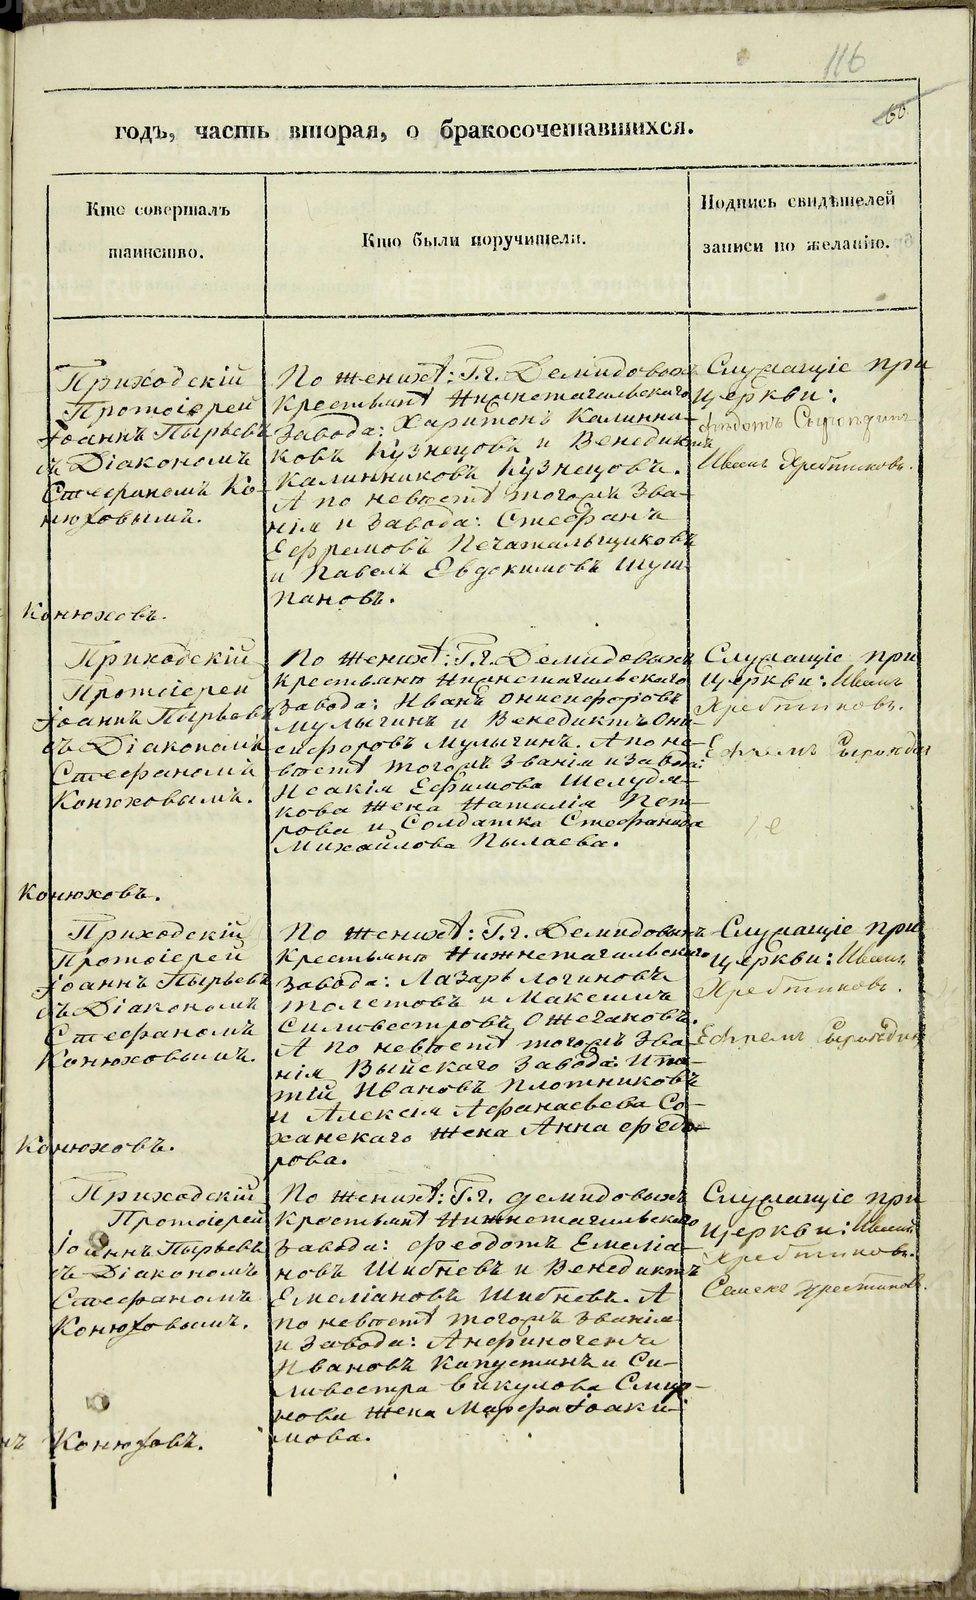 116
60
годъ, часть вторая, о бракосочетавшихся.
Кто совершалъ
таинство.
Кто были поручители.
Подпись свидѣтелей
записи по желанію.
Приходскій
Протоіерей
Іоаннъ Пырьевъ
съ Діакономъ
Стефаномъ Ко-
нюховымъ.
Конюховъ.
По женихѣ: Г.г. Демидовыхъ
Крестьянѣ Нижнетагильскаго
завода: Харитонъ Калинни-
ковъ Кузнецовъ и Венедиктъ
Калинниковъ Кузнецовъ.
А по невѣстѣ тогожъ зва-
нія и завода: Стефанъ
Ефремовъ Печатальщиковъ
и Павелъ Евдокимовъ Шуш
пановъ.
Служащіе при
церкви:
Иванъ Хребтиковъ.
Приходскій
Протоіерей
Іоаннъ Пырьевъ
съ Діакономъ
Стефаномъ
Конюховымъ.
Конюховъ.
По женихѣ: Г.г. Демидовыхъ
крестьяне Нижнетагильскаго
завода: Иванъ Онисифоровъ
Мулыгинъ и Венедиктъ Они
сифоровъ Мулыгинъ. А по не-
вѣстѣ тогожъ званія и завода:
Исакія Ефимова Шелудя-
кова жена Наталія Пет-
рова и Солдатка Стефанида
Михайлова Пылаева.
Служащіе при
церкви: Иванъ
Хребтиковъ.
Ефремъ
Приходскій
Протоіерей
Іоаннъ Пырьевъ
съ Діакономъ
Стефаномъ
Конюховымъ.
Конюховъ.
По женихѣ: Г.г. Демидовыхъ
крестьяне Нижнетагильскаго
завода: Лазарь Логиновъ
Толстовъ и Максимъ
Силивестровъ Ожегановъ.
А по невѣстѣ тогожъ зва
нія Выйскаго завода: Ипа-
тій Ивановъ Плотниковъ
и Алексія Афанасьева Со-
ханскаго жена Анна Федо-
рова.
Служащіе при
церкви: Иванъ
Хребтиковъ.
Ефремъ
Приходскій
Протоіерей
Іоаннъ Пырьевъ
съ Діакономъ
Стефаномъ
Конюховымъ.
Конюховъ.
По женихѣ: Г.г. Демидовыхъ
Крестьянѣ Нижнетагильскаго
завода: Феодотъ Емеліа-
новъ Шибневъ и Венедиктъ
Емеліановъ Шибневъ. А
по невѣстѣ тогожъ званія
и завода: Анфиногенъ
Ивановъ Капустинъ и Си-
ливестра Викулова Смир-
нова жена Марфа Іоаки-
мова.
Служащіе при
церкви: Иванъ
Хребтиковъ.
Семенъ Хрестиковъ.